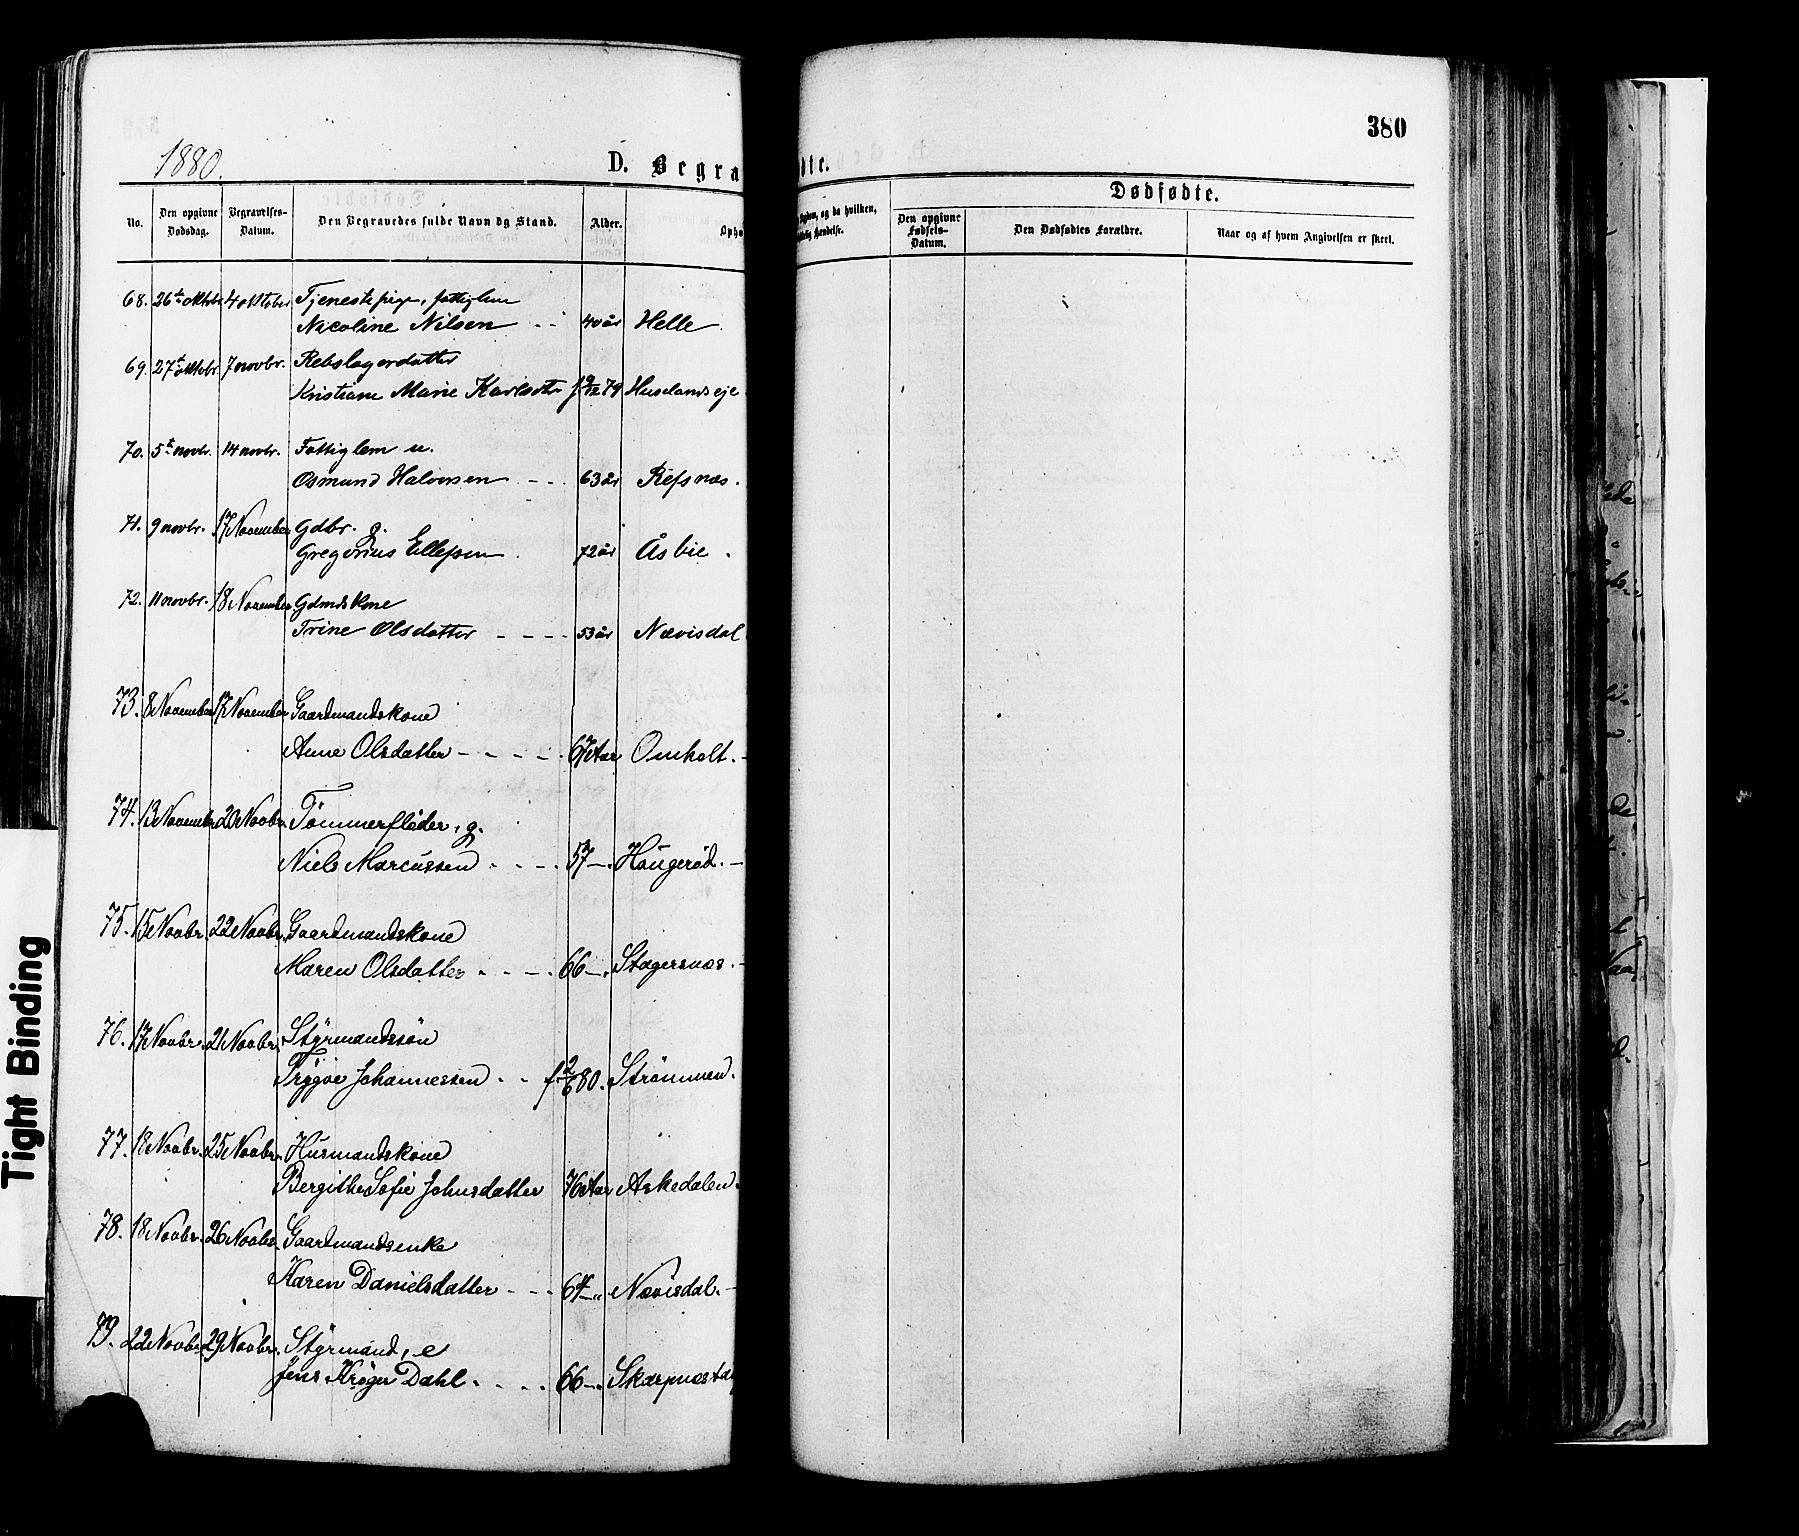 380
1880.
D. Begra
dte.
Dødfødte.
No.
Den opgivne Dødsdag.
Begravelses-Datum.
Den Begravedes fulde Navn og Stand.
Alder.
Opho
Den opgivne Fødsels-Datum.
Den Dødfødtes Forældre.
Naar og af hvem Angivelsen er skeet.
68. 26te oktbr 4 oktober Tjenestepige, fattiglem
Nicoline Nilsen - - 40 år Helle.
69. 27t oktbr. 7 novbr. Rebslagerdatter
Kristiane Marie Karlsdtr f 9/12 79 Huselandseje
70. 5t novbr. 14 novbr. Fattiglem u.
Osmund Halvorsen - - - 63 år Refsnæs.
71. 9 novbr. 17 November Gdbr. g.
Gregorius Ellefsen. 72 år Åsbie.
72. 11 novbr. 18 November Gdmdskone
Trine Olsdatter - - - - 53 år Nævisdal
73. 8 November 17 November Gaardmandskone
Anne Olsdatter - - - - - 67 Aar Omholt. -
74. 13 November 20 Novbr. Tømmerfløder, g.
Niels Marcussen - - - - 57 -. Haugerød. -
75. 15 Novbr. 22 Novbr. Gaardmandskone
Maren Olsdatter - - - - 66 -. Stagersnæs. -
76. 17 Novbr. 21 Novbr. Styrmandssøn
Trygve Johannessen - - f. 2/6 80. Strømmen.
77. 18 Novbr. 25 Novbr. Husmandskone
Bergithe Sofie Johnsdatter 76 Aar Askedalen.
78. 18 Novbr. 26 Novbr. Gaardmandsenke
Karen Danielsdatter - - - 64 - Nævisdal. -
79. 22 Novbr. 29 Novbr. Styrmand, e
Jens Krøger Dahl. - - - - 66 -. Skarpnæs
Tight Binding